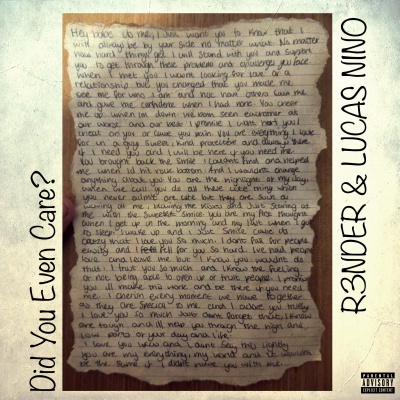 Did You Even Care?
Hey babe its me, I just want you to know that I
will always be by your side no matter what. No matter
how hard things get I will stand with you and support
you to get through these problems and challenges you face
When I met you I wasnt looking for love or a
relationship but you changed that you made me
see me for who I am and not how others saw me
and gave me confidence when I had none. You cheer
me up when im down. We both seen eachother at
our worse and our best. I promise I wont hurt you,
cheat on you or cause you pain. You are everything I look
for in a guy. Sweet, kind protective and always there
if I need you and I will be here if you need me.
You brought back the smile I couldnt find and helped
me when id hit rock bottom. And I wouldnt change
anything about you. You are the highlight of my day,
when we call you do all these cute thing which
you never admit are cute but they are such as
waving at me, blowing me kisses and just staring at
me with the sweetest smile you are my first thought
when I get up in the morning and my last when I get
to sleep
crazy what I love you so much. I dont fall for people
easily and I fell for you so hard. Ive had people
love and leave me but I know you wouldnt do
that. I trust you so much and I know the feeling
of not being able to open up or trust people. I promise
you ill make this work and be there if you need
me. I cherish every moment we have together
as they are special to me and I adore you truly
I love you so much just dont forget that, I know
are tough and ill help you through the high and
low parts of your day and life.
I love you Lucas and I dont say this lightly
you are my everything, my world and it wouldnt
be the same if I didnt have you with me.
R3NDER & LUCAS NINO
PARENTAL
ADVISORY
EXPLICIT CONTENT